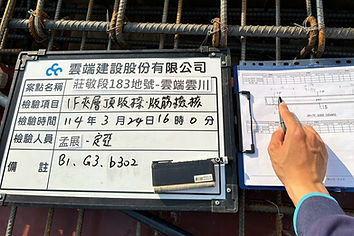 雲端建設股份有限公司
案點名稱 莊敬段183地號-雲端雲川
檢驗項目 1F夾層頂版樑.版筋檢核
檢驗時間 114年3月24日16時0分
檢驗人員 孟展-
備註 B1、G3、b302